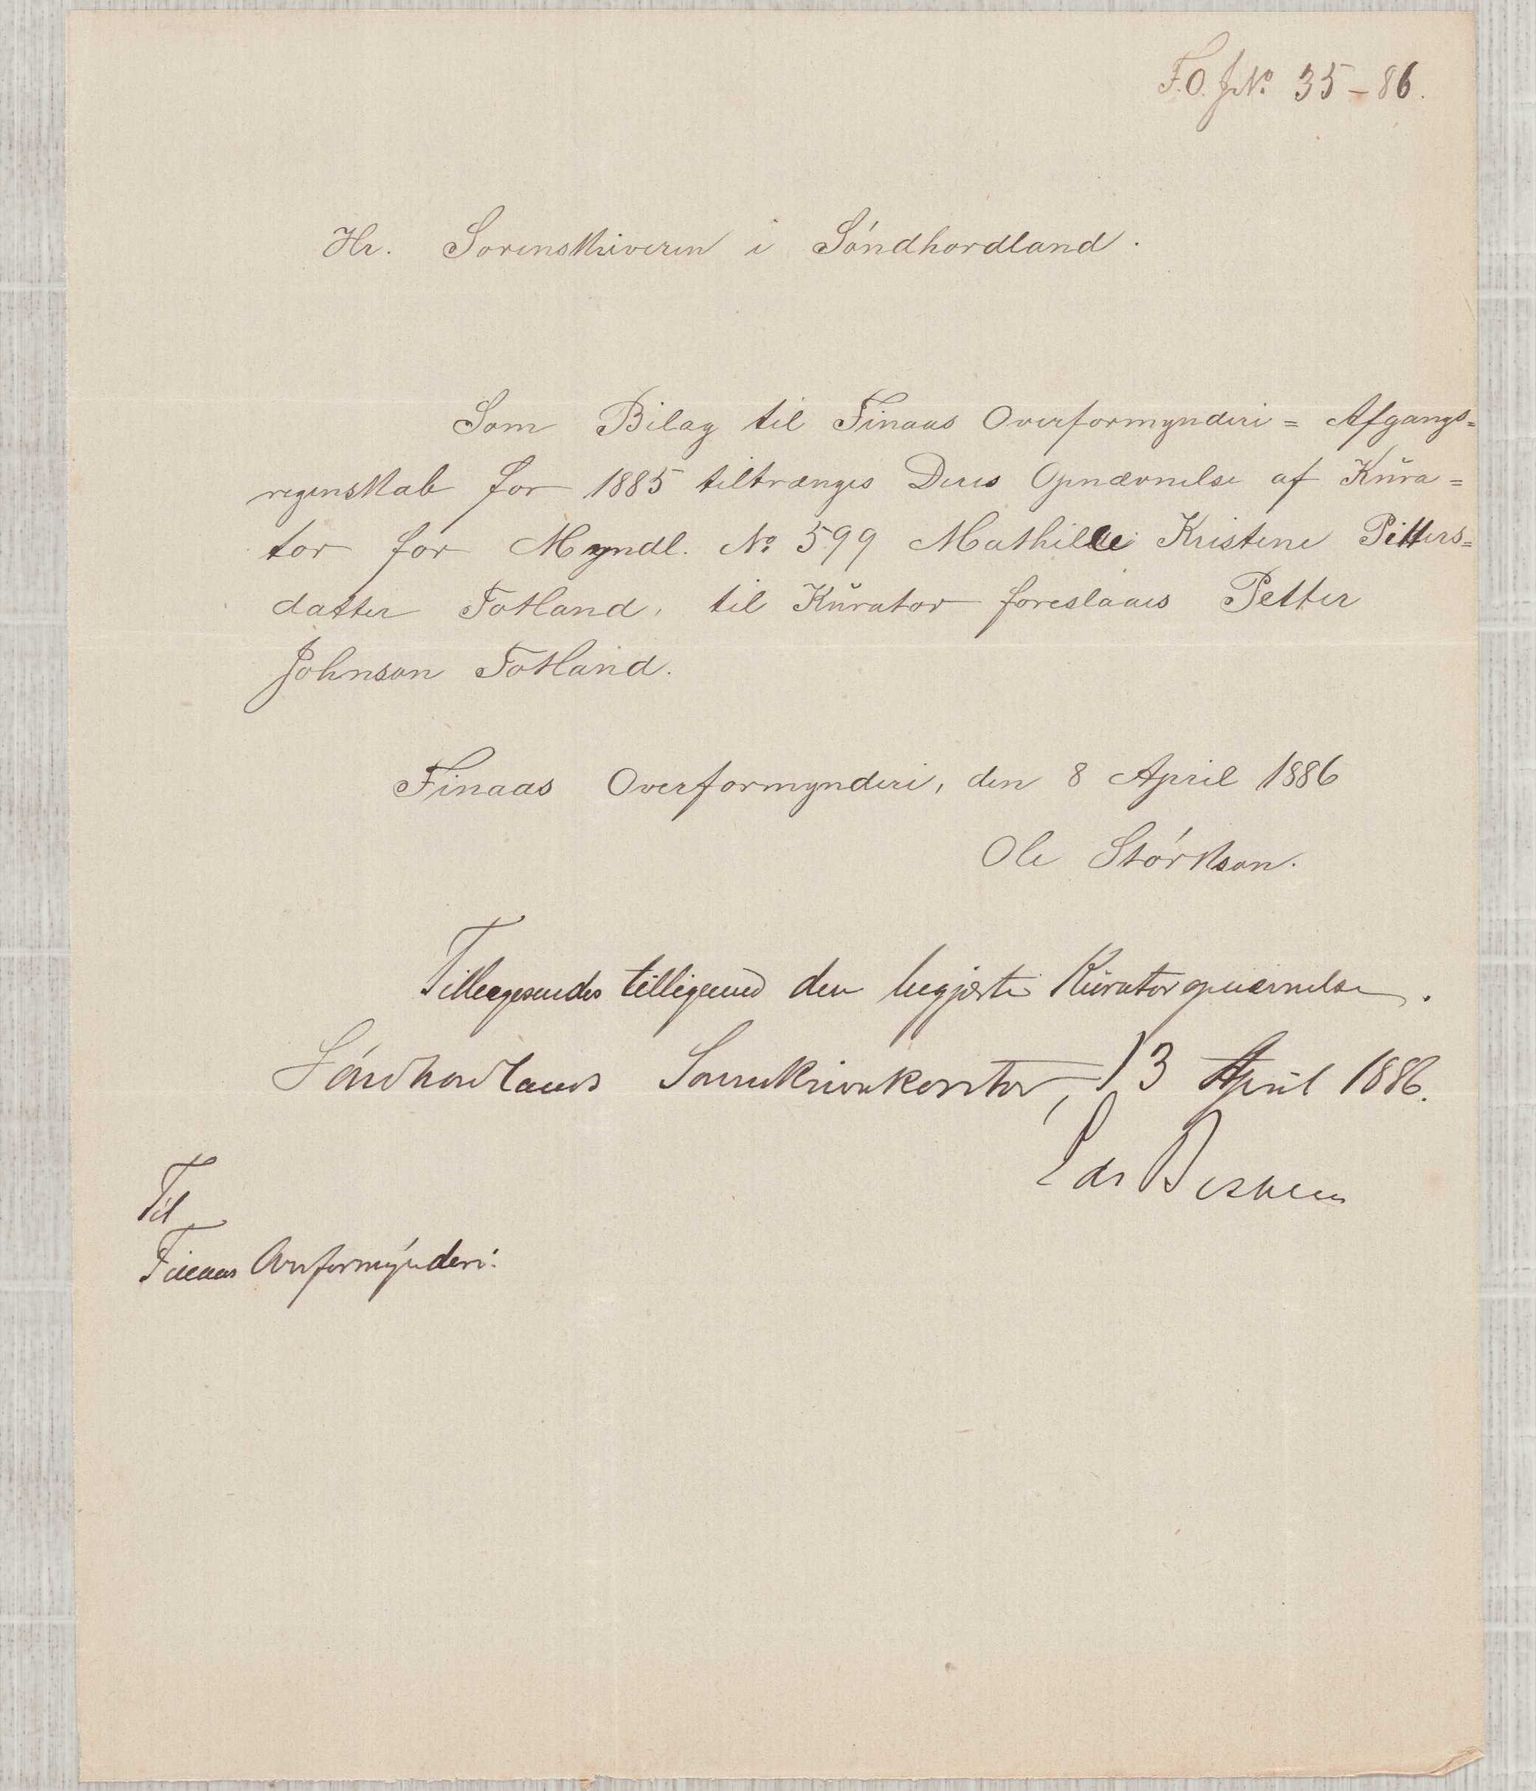 F.O.J№ 35-86.
Hr. Sorenskriveren i Söndhordland.
Som Bilag til Finaas Overformynderi = Afgangs=
regenskab for 1885 tiltrænges Deres Opnævnelse af Kura=
tor for Myndl. № 599 Mathilde Kristine Pitters=
datter Totland, til Kurator foreslaaes Petter
Johnson Totland.
Finaas Overformynderi, den 8 April 1886
Ole Störkson.
Tilbagesendes tilligemed den begjærte Kuratoropnævnelse.
Söndhordlands Sorenskriverkontor, 13 April 1886.
Til
Finaas Overformynderi.